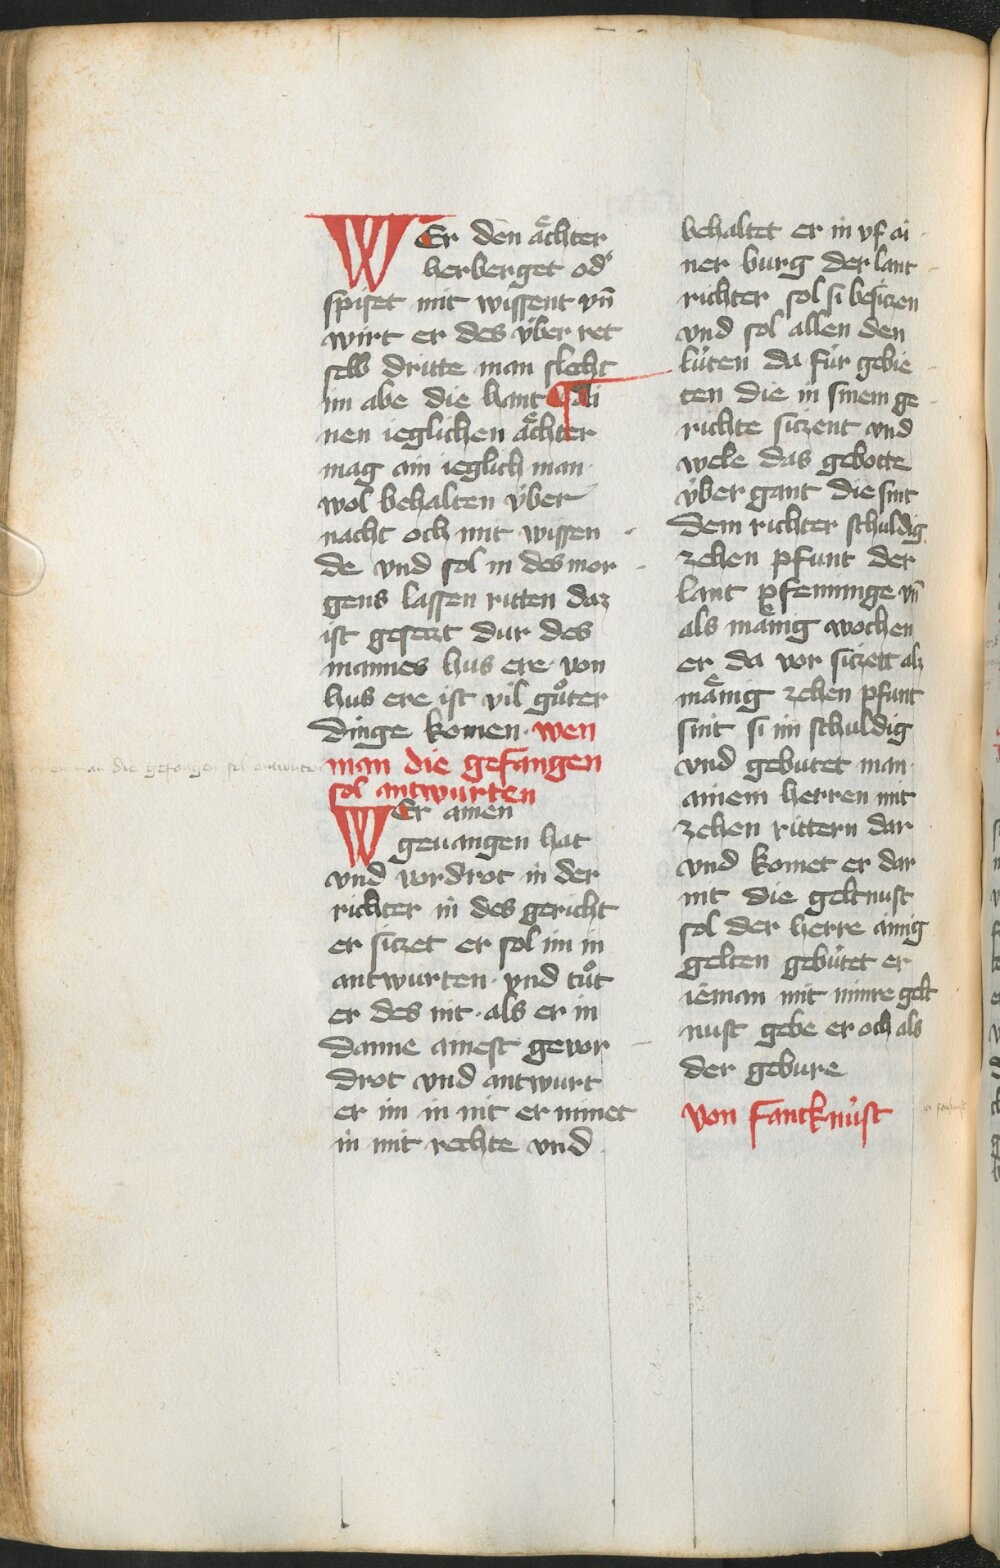 WEr den aͤchter
herberget od'
spiset mit wissent vn̄
wirt er des v́ber ret
selb dritte man slecht
im abe die hant ¶ Ai
nen ieglichen aͤchter
mag ain ieglich man
wol behalten v́ber
nacht och mit wissen
de vnd sol in des mor
gens lassen ritten daz
ist gesetzt dur des
mannes hus ere von
hus ere ist vil guͦter
dinge komen. wen
man die gefangen
sol antwurten
WEr ainen
geuangen hat
vnd vordrot in der
richter in des gericht
er sitzet er sol im in
antwurten. vnd tuͦt
er des nit. als er in
danne ainest gevor
drot vnd antwurt
er im in nit er nimet
in mit rechte vnd
wen man die gefangen sol antwurten
behaltet er in vf ai
ner burg der lant
richter sol si besitzen
vnd sol allen den
luͤten da fuͤr gebie
ten die in sinem ge
richte sitzent vnd
wele das gebotte
v́ber gant die sint
dem richter schuldig
zehen pfunt der
lant pfenninge vn̄
als maͤnig wochen
er da vor sitzett alz
maͤnig zehen pfunt
sint si im schuldig
vnd gebutet man
ainem herren mit
zehen rittern dar
vnd komet er dar
nit die geltnust
sol der herre ainig
gelten gebuͤtet er
ieman mit minre gelt
nust gebe er och als
der gebure
von fancknúst